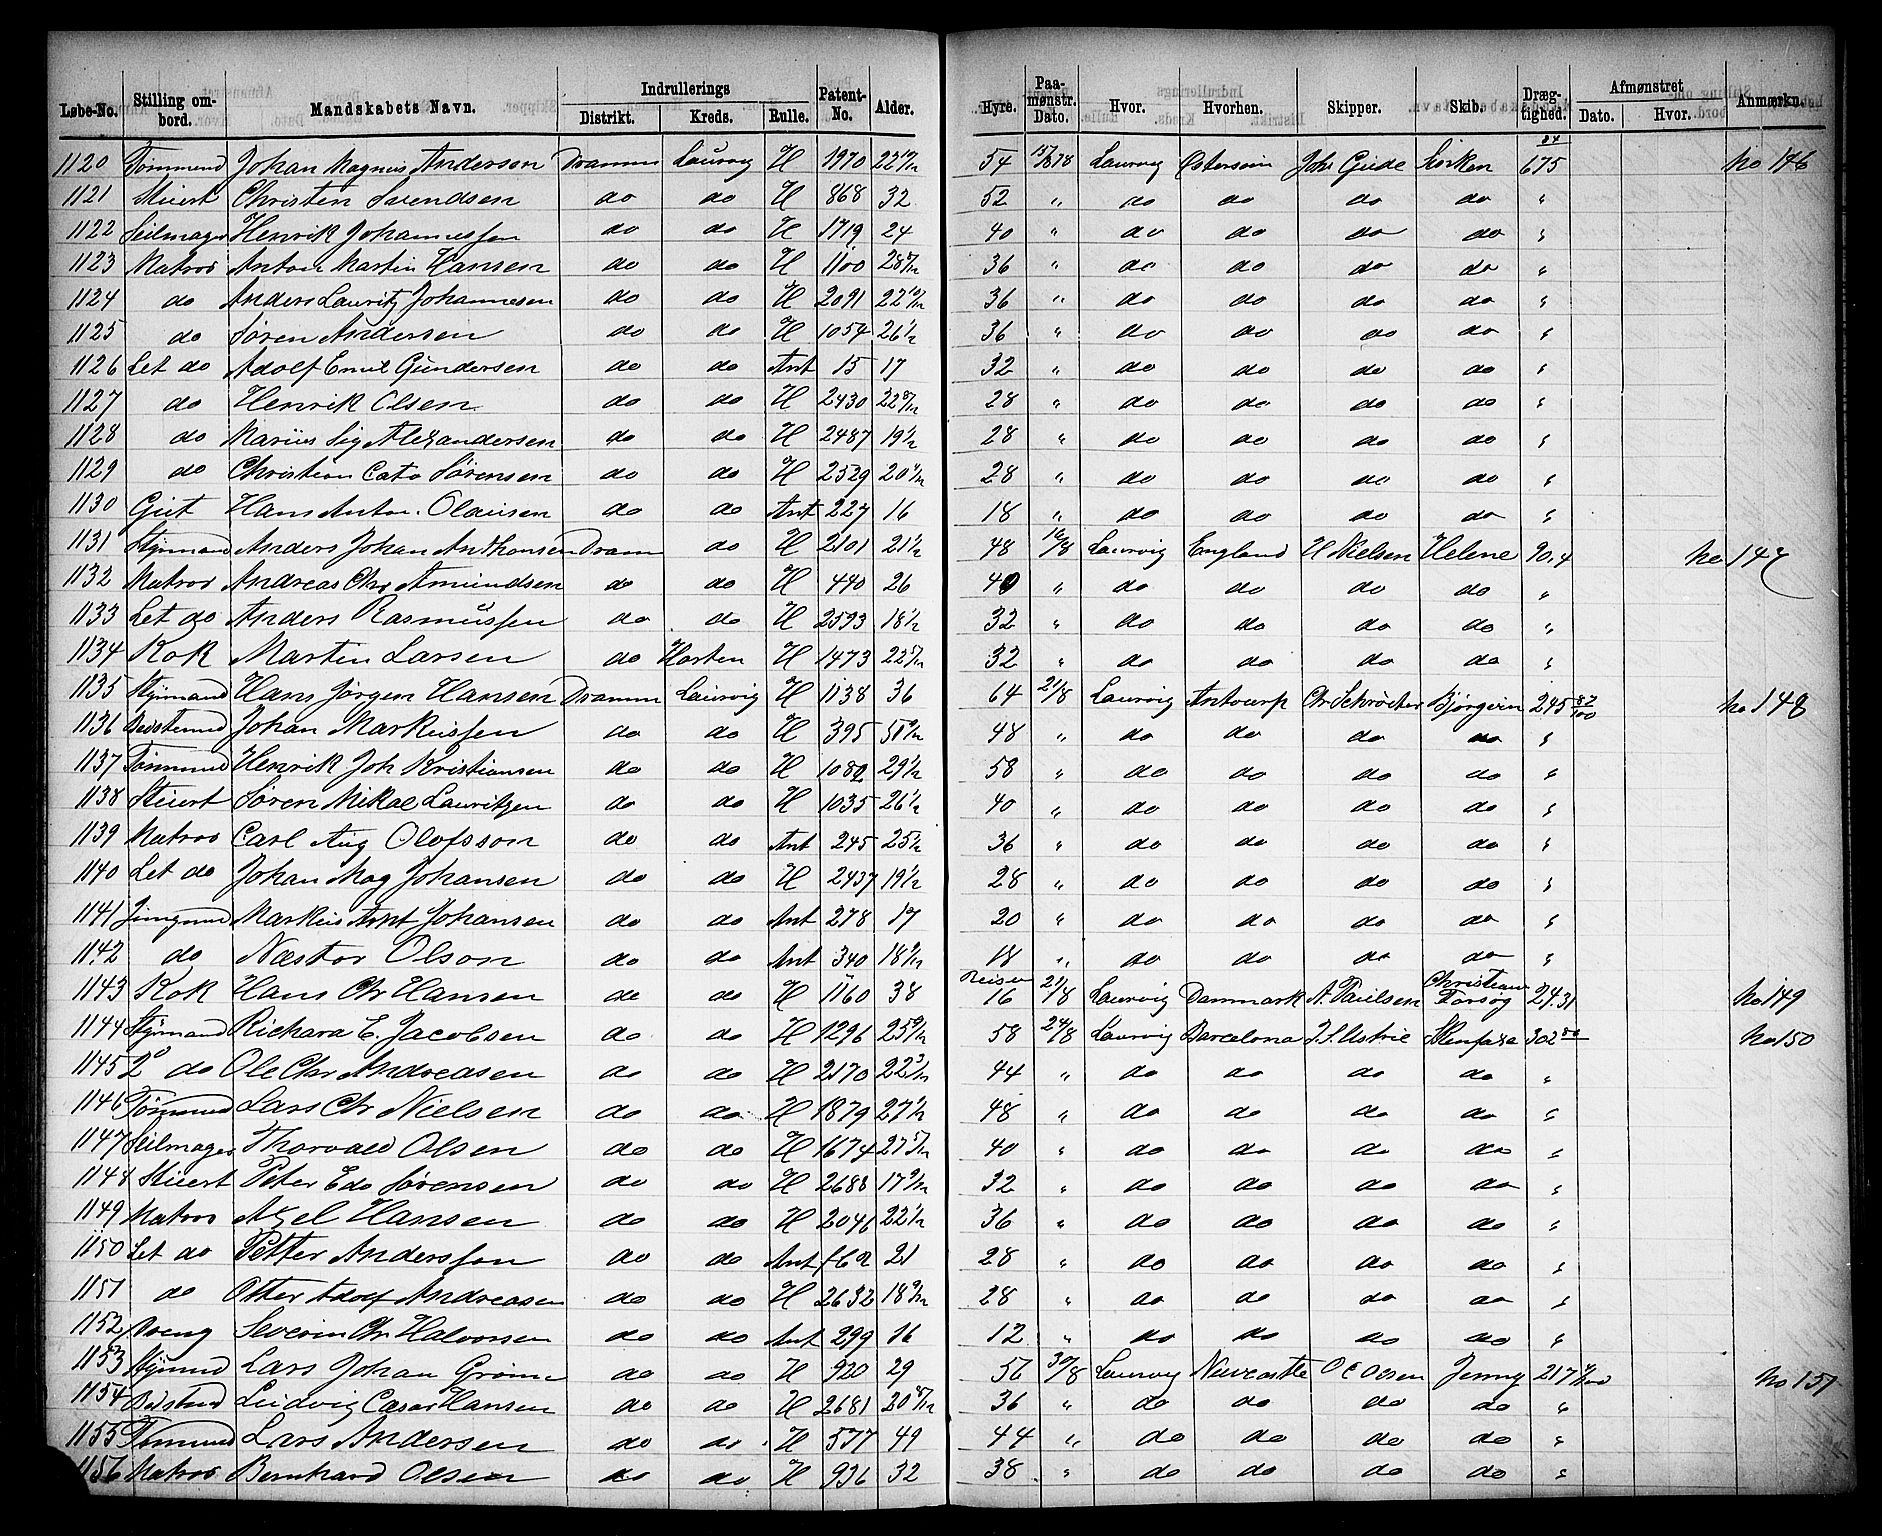 Løbe-No. | Stilling ombord. | Mandskabets Navn. | Indrullerings Distrikt. | Kreds. | Rulle. | Patent-No. | Alder. | Hyre. | Paamønstr. Dato. | Hvor. | Hvorhen. | Skipper. | Skib. | Drægtighed. | Afmønstret Dato. | Hvor. | Anmærkn.
1120 Tømmend Johan Magnus Anderson Dramm Laurvig H 1970 54 Laurvig Østersøen Joh Gude 675 No 146
1121 Stuert Christen Svendsen do do H 868 32 52 " do do do do "
1122 Seilmager Henrik Johannessen do do H 1719 24 40 " do do do do "
1123 Matros Anton Martin Hansen do do H 1100 36 " do do do do "
1124 do Anders Lauritz Johannesen do do H 2091 36 " do do do do "
1125 do Søren Andersen do do H 1054 26½ 36 " do do do do "
1126 Let do Adolf Emil Gundersen do do Ant 15 17 32 " do do do do "
1127 do Henrik Olsen do do H 2430 28 " do do do do "
1128 do Marius Sig Alexandersen do do H 2487 19½ 28 " do do do do "
1129 do Christian Cato Sørensen do do H 2529 28 " do do do do "
1130 Gut Hans Anton Olausen do do Ant 227 16 18 " do do do do "
1131 Styrmand Anders Johan Anthonsen Dram do H 2101 21½ 48 16/8 Laurvig England H Nielsen Helene 90,4 No 147
1132 Matros Andreas Chr Amundsen do do H 490 26 40 " do do do do "
1133 Let do Anders Rasmussen do do H 2593 18½ 32 " do do do do "
1134 Kok Martin Larsen do Horten H 1473 32 " do do do do "
1135 Styrmand Hans Jørgen Hansen Dramm Laurvig H 1138 36 64 21/8 Laurvig Antwerp Chr Schrøder Bjørgvin 245 87/100 No 148
1136 Johan Markussen do do H 395 48 " do do do do "
1137 Tømmend Henrik Joh Kristiansen do do H 1082 29½ 58 " do do do do "
1138 Stuert Søren Mikal Lauritzen do do H 1035 26½ 40 " do do do do "
1139 Matros Carl Aug Olofsson do do Ant 245 25½ 36 " do do do do "
1140 Let do Johan Mag Johansen do do H 2437 19½ 28 " do do do do "
1141 Jungmd Markus Arnt Johansen do do Ant 278 17 20 " do do do do "
1142 do Næstor Olson do do Ant 340 18 " do do do do "
1143 Kok Hans Chr Hansen do do H 1160 38 Reisen 16 21/8 Laurvig Danmark A. Paulsen Christians Forsøg 24.31 No 149
1144 Styrmand Richard E. Jacobsen do do H 1296 58 24/8 Laurvig Barcelona 302 No 150
1145 2° do Ole Chr Andreasen do do H 2170 22 3/12 44 " do do do do "
1146 Tømmend Lars Chr Nielsen do do H 1879 27½ 48 " do do do do "
1147 Seilmager Thorvald Olsen do do H 1674 40 " do do do do "
1148 Stuert Peter Edv Sørensen do do H 2688 32 " do do do do "
1149 Matros Axel Hansen do do H 2046 22½ 36 " do do do do "
1150 Let do Petter Anderssen do do Ant 21 28 " do do do do "
1151 do Otter Adolf Andreasen do do H 2632 28 " do do do do "
1152 Dreng Severin Chr Halvorsen do do Ant 299 16 12 " do do do do "
1153 Styrmd Lars Johan do do H 920 29 56 30/8 Laurvig Newcastle O C Olsen Jenny 217 No 151
1154 Ludvig Cæsar Hansen do do H 2681 36 " do do do do "
1155 Tømmend Lars Andersen do do H 577 49 44 " do do do do "
1156 Matros Bernhard Olsen do do H 936 32 38 " do do do do "